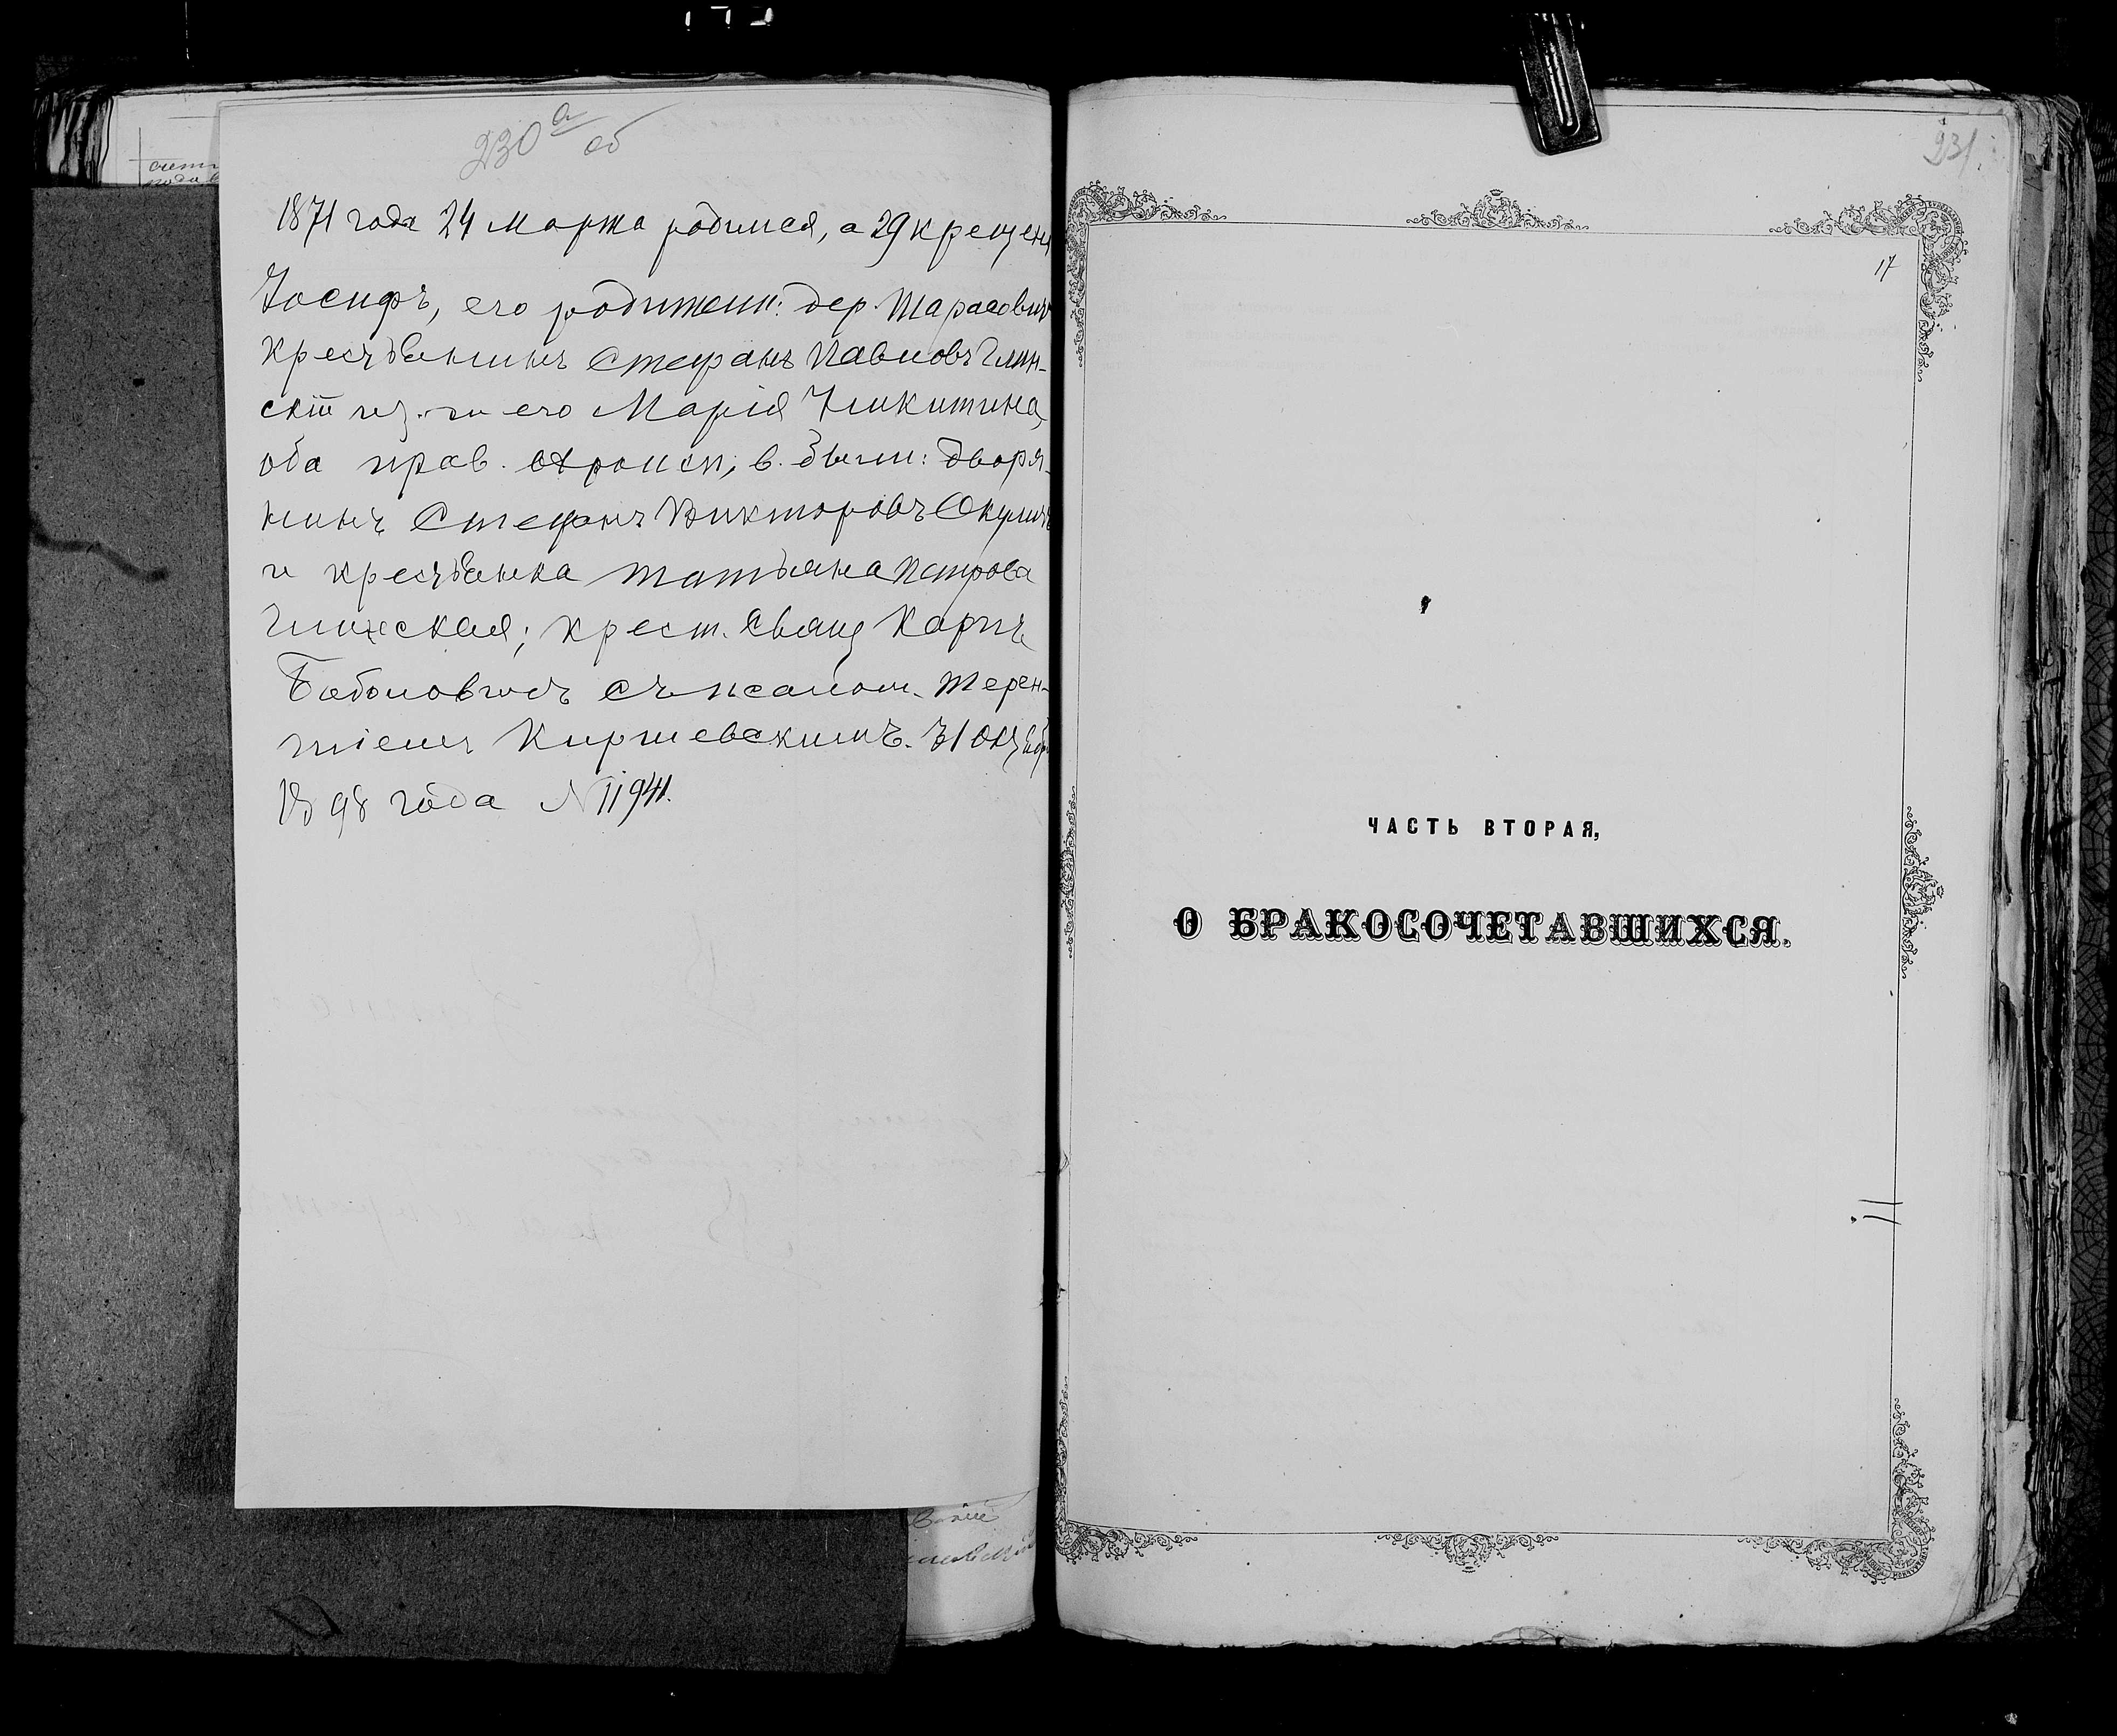 230 а об
1871 года 24 Марта родился, а 29 крещенъ
Іосифъ, его родители: дер. Тарасович
крестьянинъ Стефанъ Павловъ Глин-
скій и з. ж. его Марія Никитина,
оба прав. исп., в. были: дворя-
нинъ Стефанъ Викторовъ Окулич
и крестьянка Татьяна Петрова
Глинская; крест. Свящ Карпъ
Баболовичъ съ псалом. Терен-
тіемъ Киршевскимъ. 31 Октябр
1898 года № 11941.
231.
17
ЧАСТЬ ВТОРАЯ,
О БРАКОСОЧЕТАВШИХСЯ.